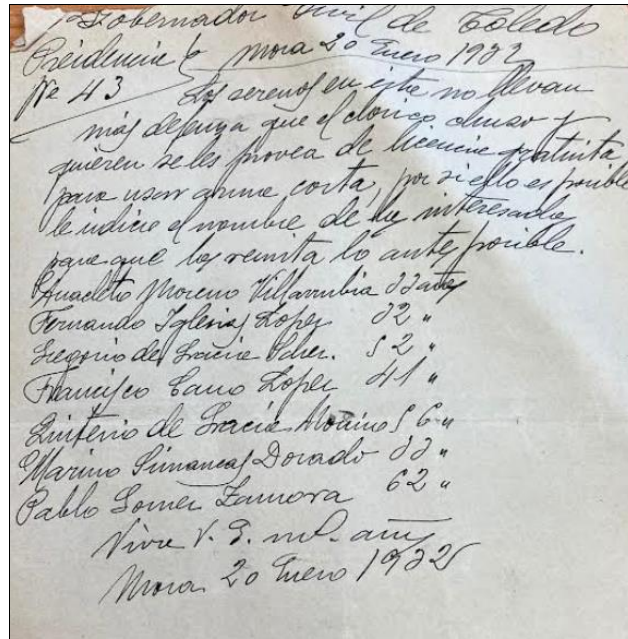 Gobernador Civil de Toledo
Presidencia Mora 20 Enero 1932
Nº 43 Los serenos en esta no llevan
más defensa que el clásico chuzo y
quieren se les provea de licencia gratuita
para usar arma corta, por si ello es posible
le indico el nombre de los interesados
para que los remita lo antes posible.
Anacleto Moreno Villarrubia 33 años
Fernando Iglesias Lopez 32 "
Gregorio de Gracia Schez. 52 "
Francisco Cano Lopez 41 "
Quiterio de Gracia 56 "
Marino Simancas Dorado 33 "
Pablo Gomez Zamora 62 "
Viva V. E. ms. años
Mora 20 Enero 1932